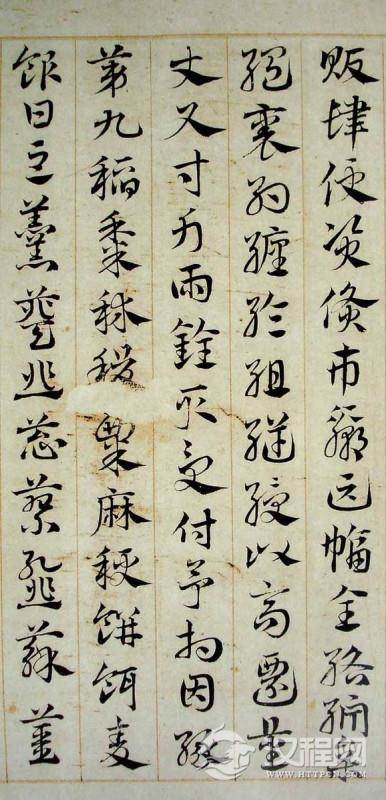 販肆便資貨市贏匹幅全絡紵枲
緼裹約纏綸組縌綬以高遷量
丈尺寸斤兩銓取受付予相因緣
第九稻黍秫稷粟麻秔餅餌麥
飯甘豆羹葵韭葱蓼韰蘇薑
汉程网
WWW.HTTPCN.COM